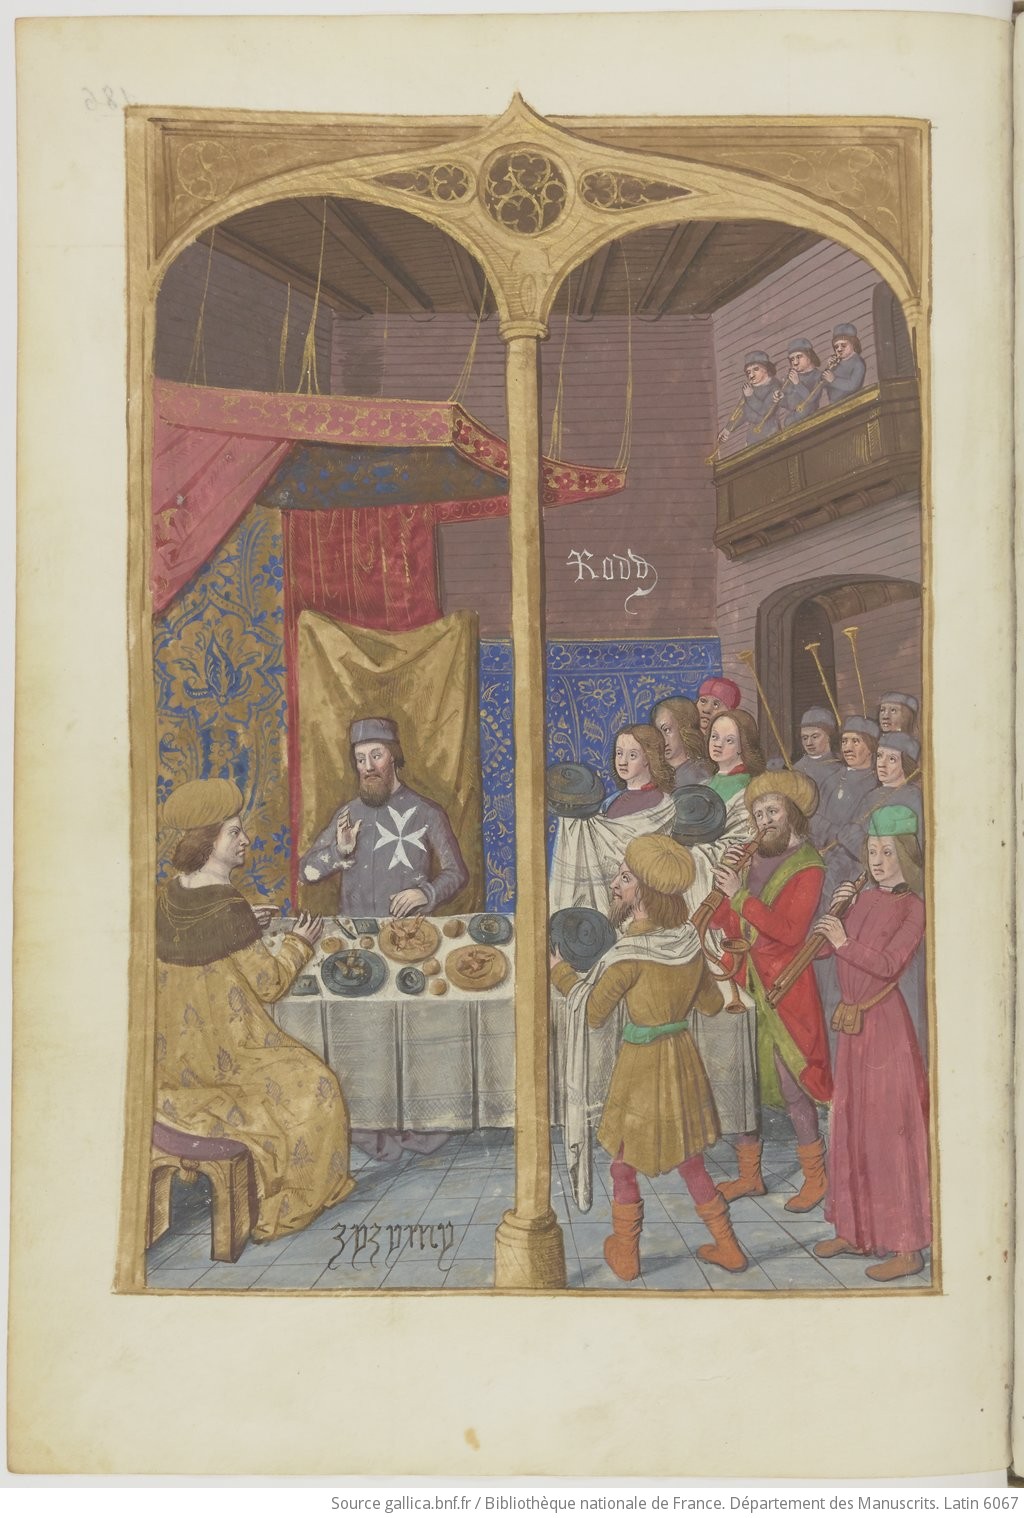 Rodꝰ
zyzymy
Source gallica.bnf.fr / Bibliothèque nationale de France. Département des Manuscrits. Latin 6067